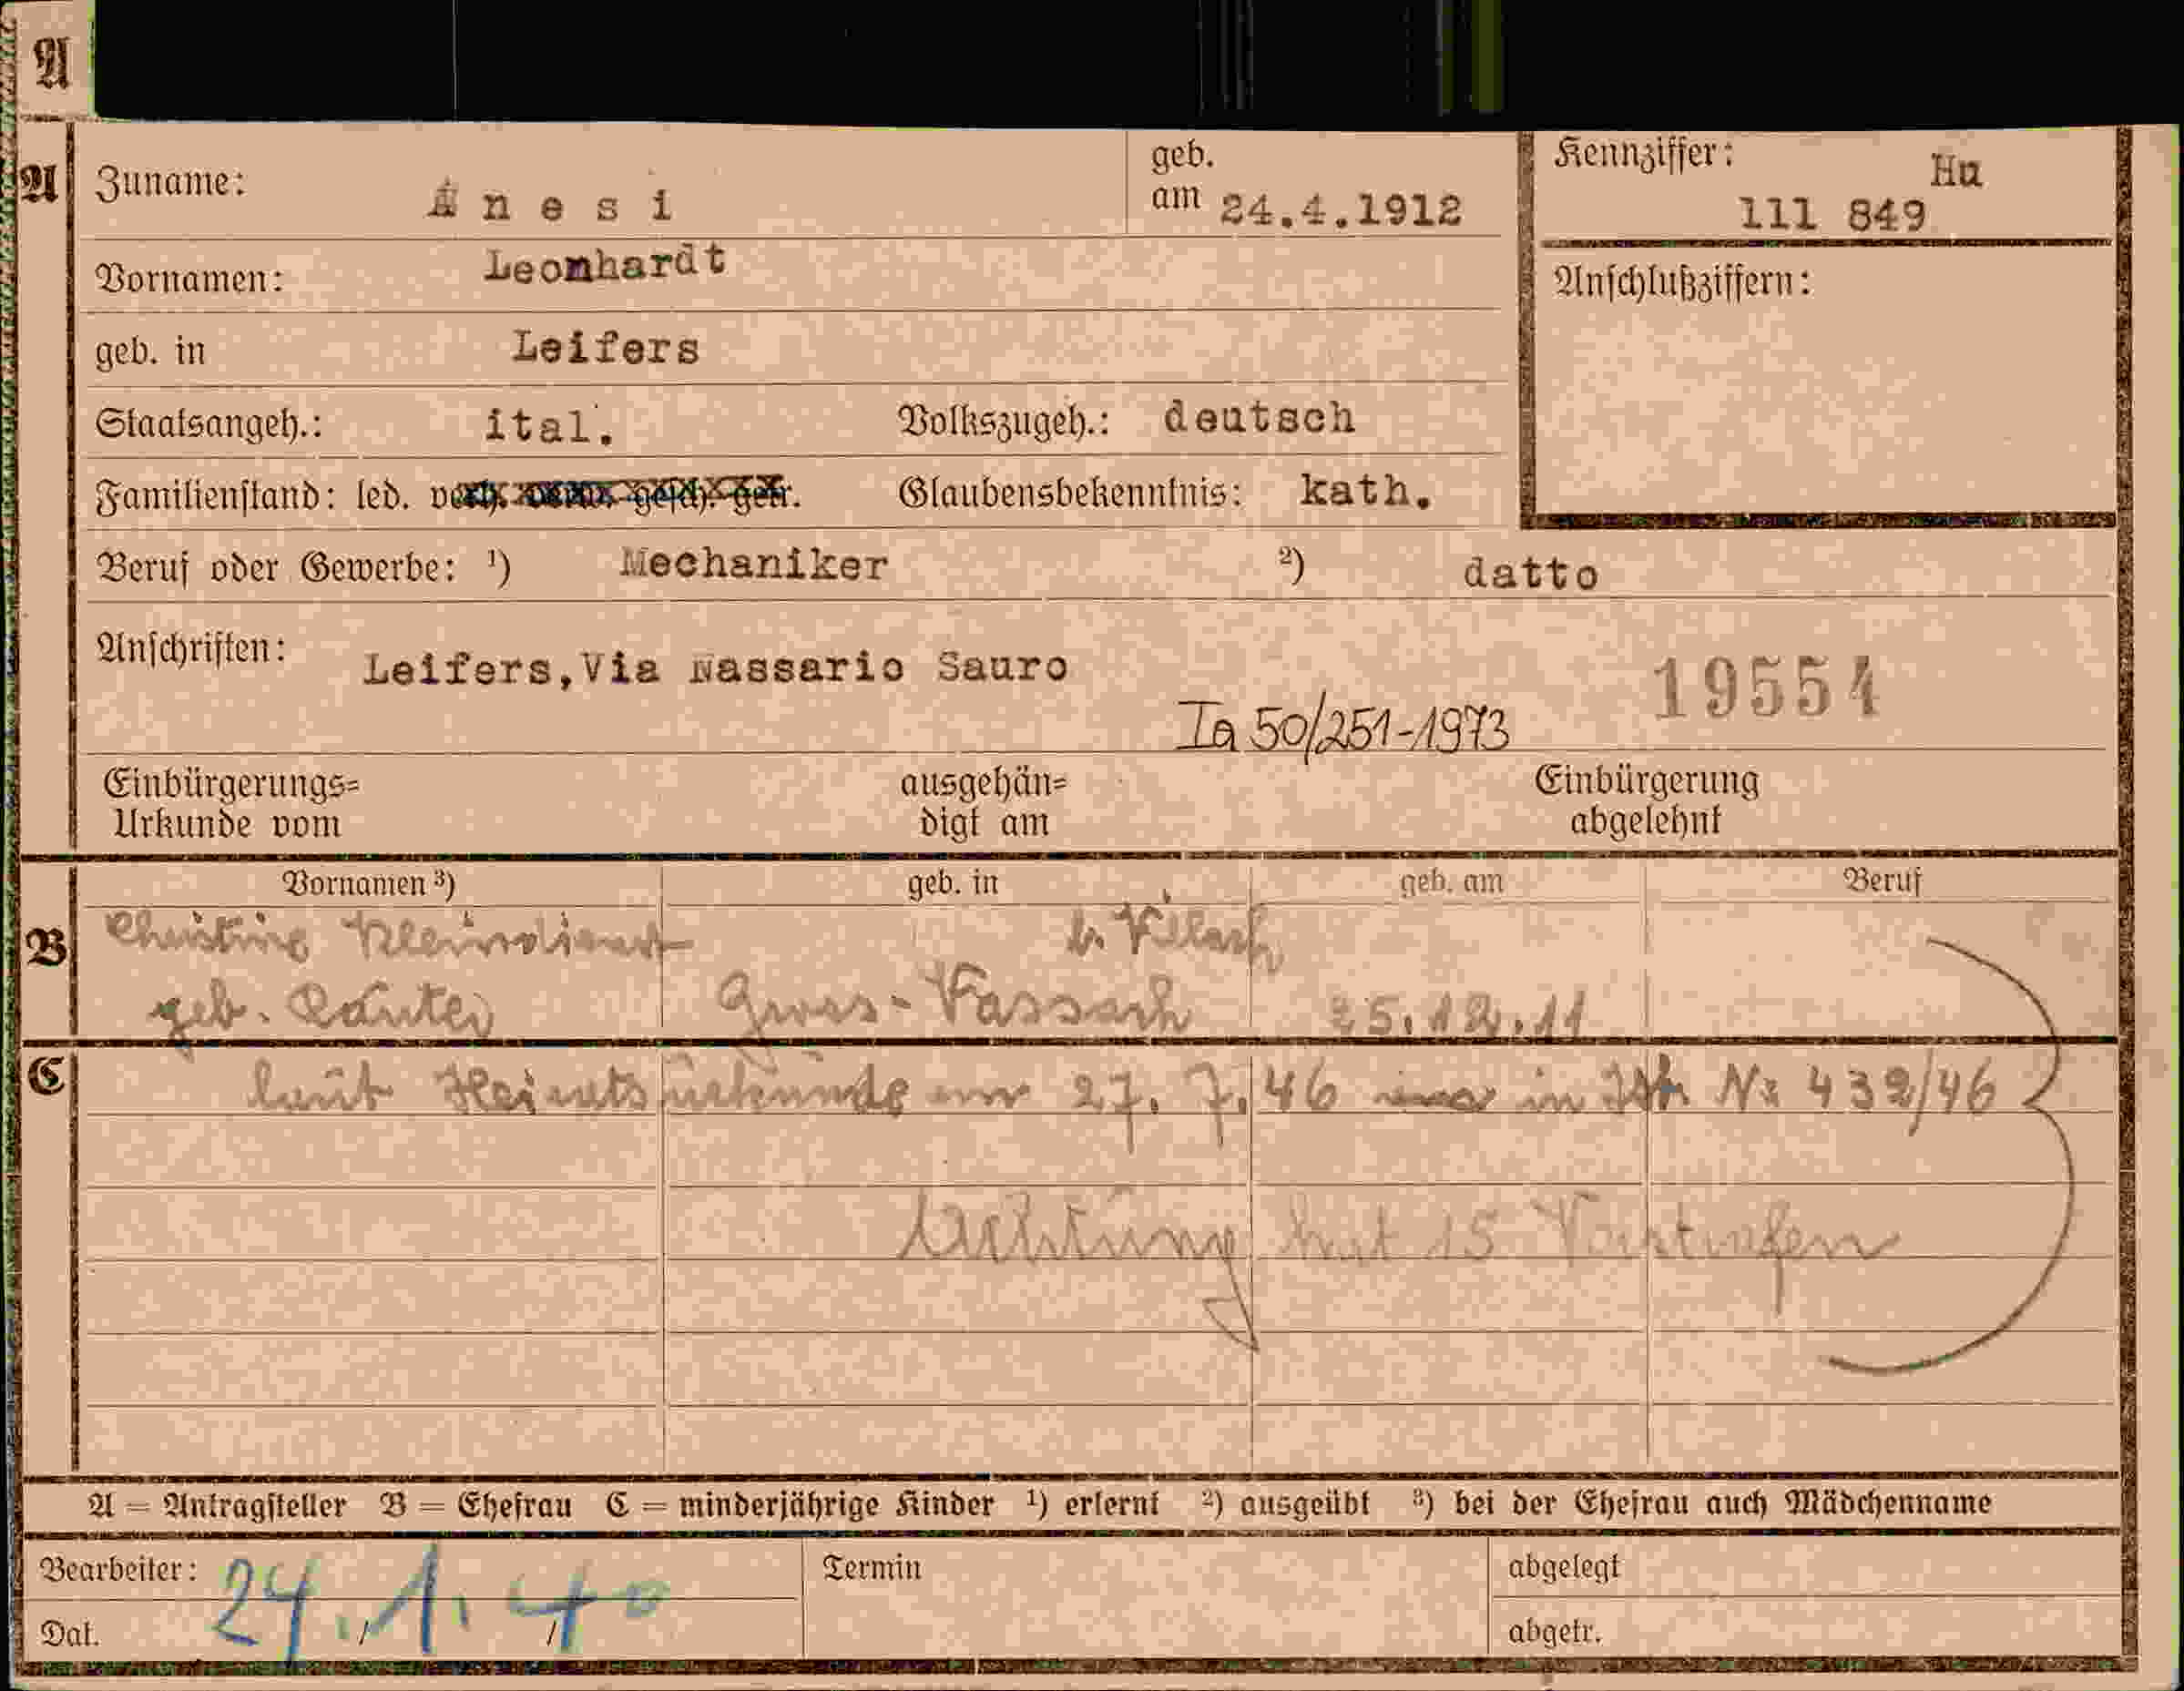 A
A Zuname: Anesi geb. am 24.4.1912 Kennziffer: Hu 111 849
Vornamen: Leonhardt Anschlußziffern:
geb. in Leifers
Staatsangeh.: ital. Volkszugeh.: deutsch
Familienstand: led. verh. verw. gesch. getr. Glaubensbekenntnis: kath.
Beruf oder Gewerbe: ¹) Mechaniker ²) datto
Anschriften: Leifers,Via Nassario Sauro 19554
Ia 50/251-1973
Einbürgerungs= ausgehän= Einbürgerung
Urkunde vom digt am abgelehnt
Vornamen ³) geb. in geb. am Beruf
B Christine Kleindienst b. Villach
geb. Gross-Vassach 25.12.11
C laut Heiratsurkunde 27. 7. 46 in No 432/46
Achtung hat 15
A = Antragsteller B = Ehefrau C = minderjährige Kinder ¹) erlernt ²) ausgeübt ³) bei der Ehefrau auch Mädchenname
Bearbeiter: Termin abgelegt
Dat. 24.1.40 abgetr.